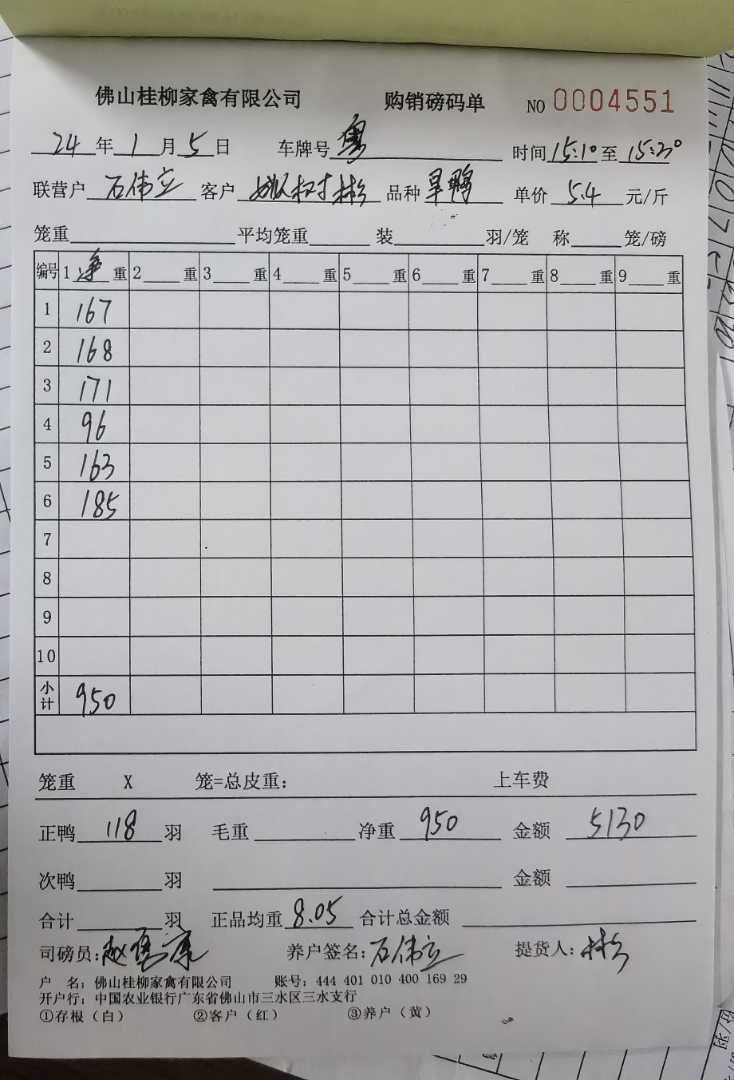 佛山桂柳家禽有限公司 购销磅码单 NO 0004551
24 年 1 月 5 日 车牌号 粤 时间 15:10 至 15:20
联营户 石伟立 客户 姚树彬 品种 旱鸭 单价 5.4 元/斤
笼重 平均笼重 装 羽/笼 称 笼/磅
编号 1 净 重 2 重 3 重 4 重 5 重 6 重 7 重 8 重 9 重
1 167
2 168
3 171
4 96
5 163
6 185
7
8
9
10
小计 950
笼重 X 笼=总皮重: 上车费
正鸭 118 羽 毛重 净重 950 金额 5130
次鸭 羽 金额
合计 羽 正品均重 8.05 合计总金额
司磅员: 养户签名: 石伟立 提货人: 彬
户 名: 佛山桂柳家禽有限公司 账号: 444 401 010 400 169 29
开户行: 中国农业银行广东省佛山市三水区三水支行
①存根（白） ②客户（红） ③养户（黄）